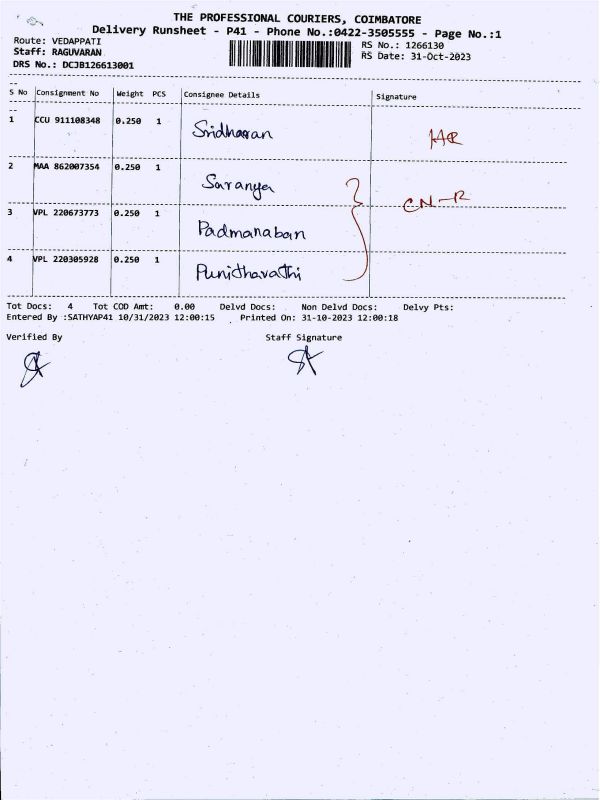 THE PROFESSIONAL COURIERS, COIMBATORE
Delivery Runsheet - P41 - Phone No.:0422-3505555 - Page No.:1
Route: VEDAPPATI
RS No.: 1266130
Staff: RAGUVARAN
RS Date: 31-Oct-2023
DRS No.: DCJB126613001
S No Consignment No Weight PCS Consignee Details Signature
1 CCU 911108348 0.250 1 Sridharan
2 MAA 862007354 0.250 1 Saranya CN-R
3 VPL 220673773 0.250 1 Padmanaban
4 VPL 220305928 0.250 1 Punithavathi
Tot Docs: 4 Tot COD Amt: 0.00 Delvd Docs: Non Delvd Docs: Delvy Pts:
Entered By :SATHYAP41 10/31/2023 12:00:15 Printed On: 31-10-2023 12:00:18
Verified By Staff Signature